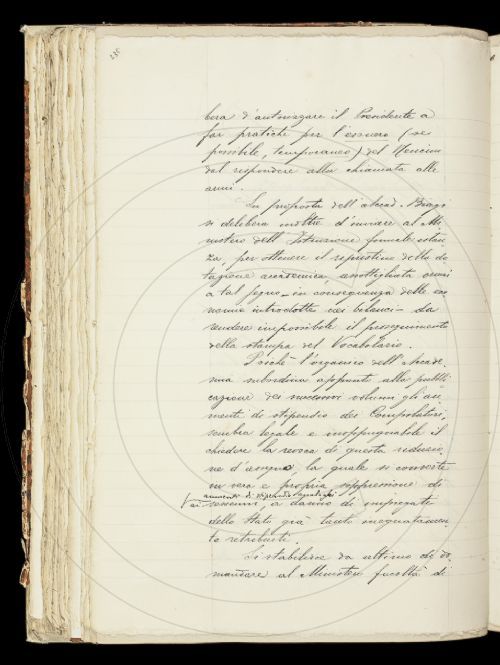 bera d'autorizzare il Presidente a
far pratiche per l'esonero (se
possibile, temporaneo) del Mencini
dal rispondere alla chiamata alle
armi.
Su proposta dell'Accad. Biagi
si delibera inoltre d'inviare al Mi-
nistero dell'Istruzione formale istan-
za, per ottenere il ripristino della do-
tazione accademica, assottigliata ormai
a tal segno – in conseguenza delle eco-
nomie introdotte nei bilanci – da
rendere impossibile il proseguimento
della stampa del Vocabolario.
Poiché l'organico dell'Accade-
mia subordina appunto alla pubbli-
cazione dei successivi volumi gli au-
menti di stipendio dei Compilatori,
sembra legale e inoppugnabile il
chiedere la revoca di questa riduzio-
ne d'assegno, la quale si converte
in vera e propria soppressione di
aumento di stipendio
sessenni, a danno di impiegati
dello Stato già tanto inadeguatamen-
te retribuiti.
Si stabilisce da ultimo di do-
mandare al Ministero facoltà di